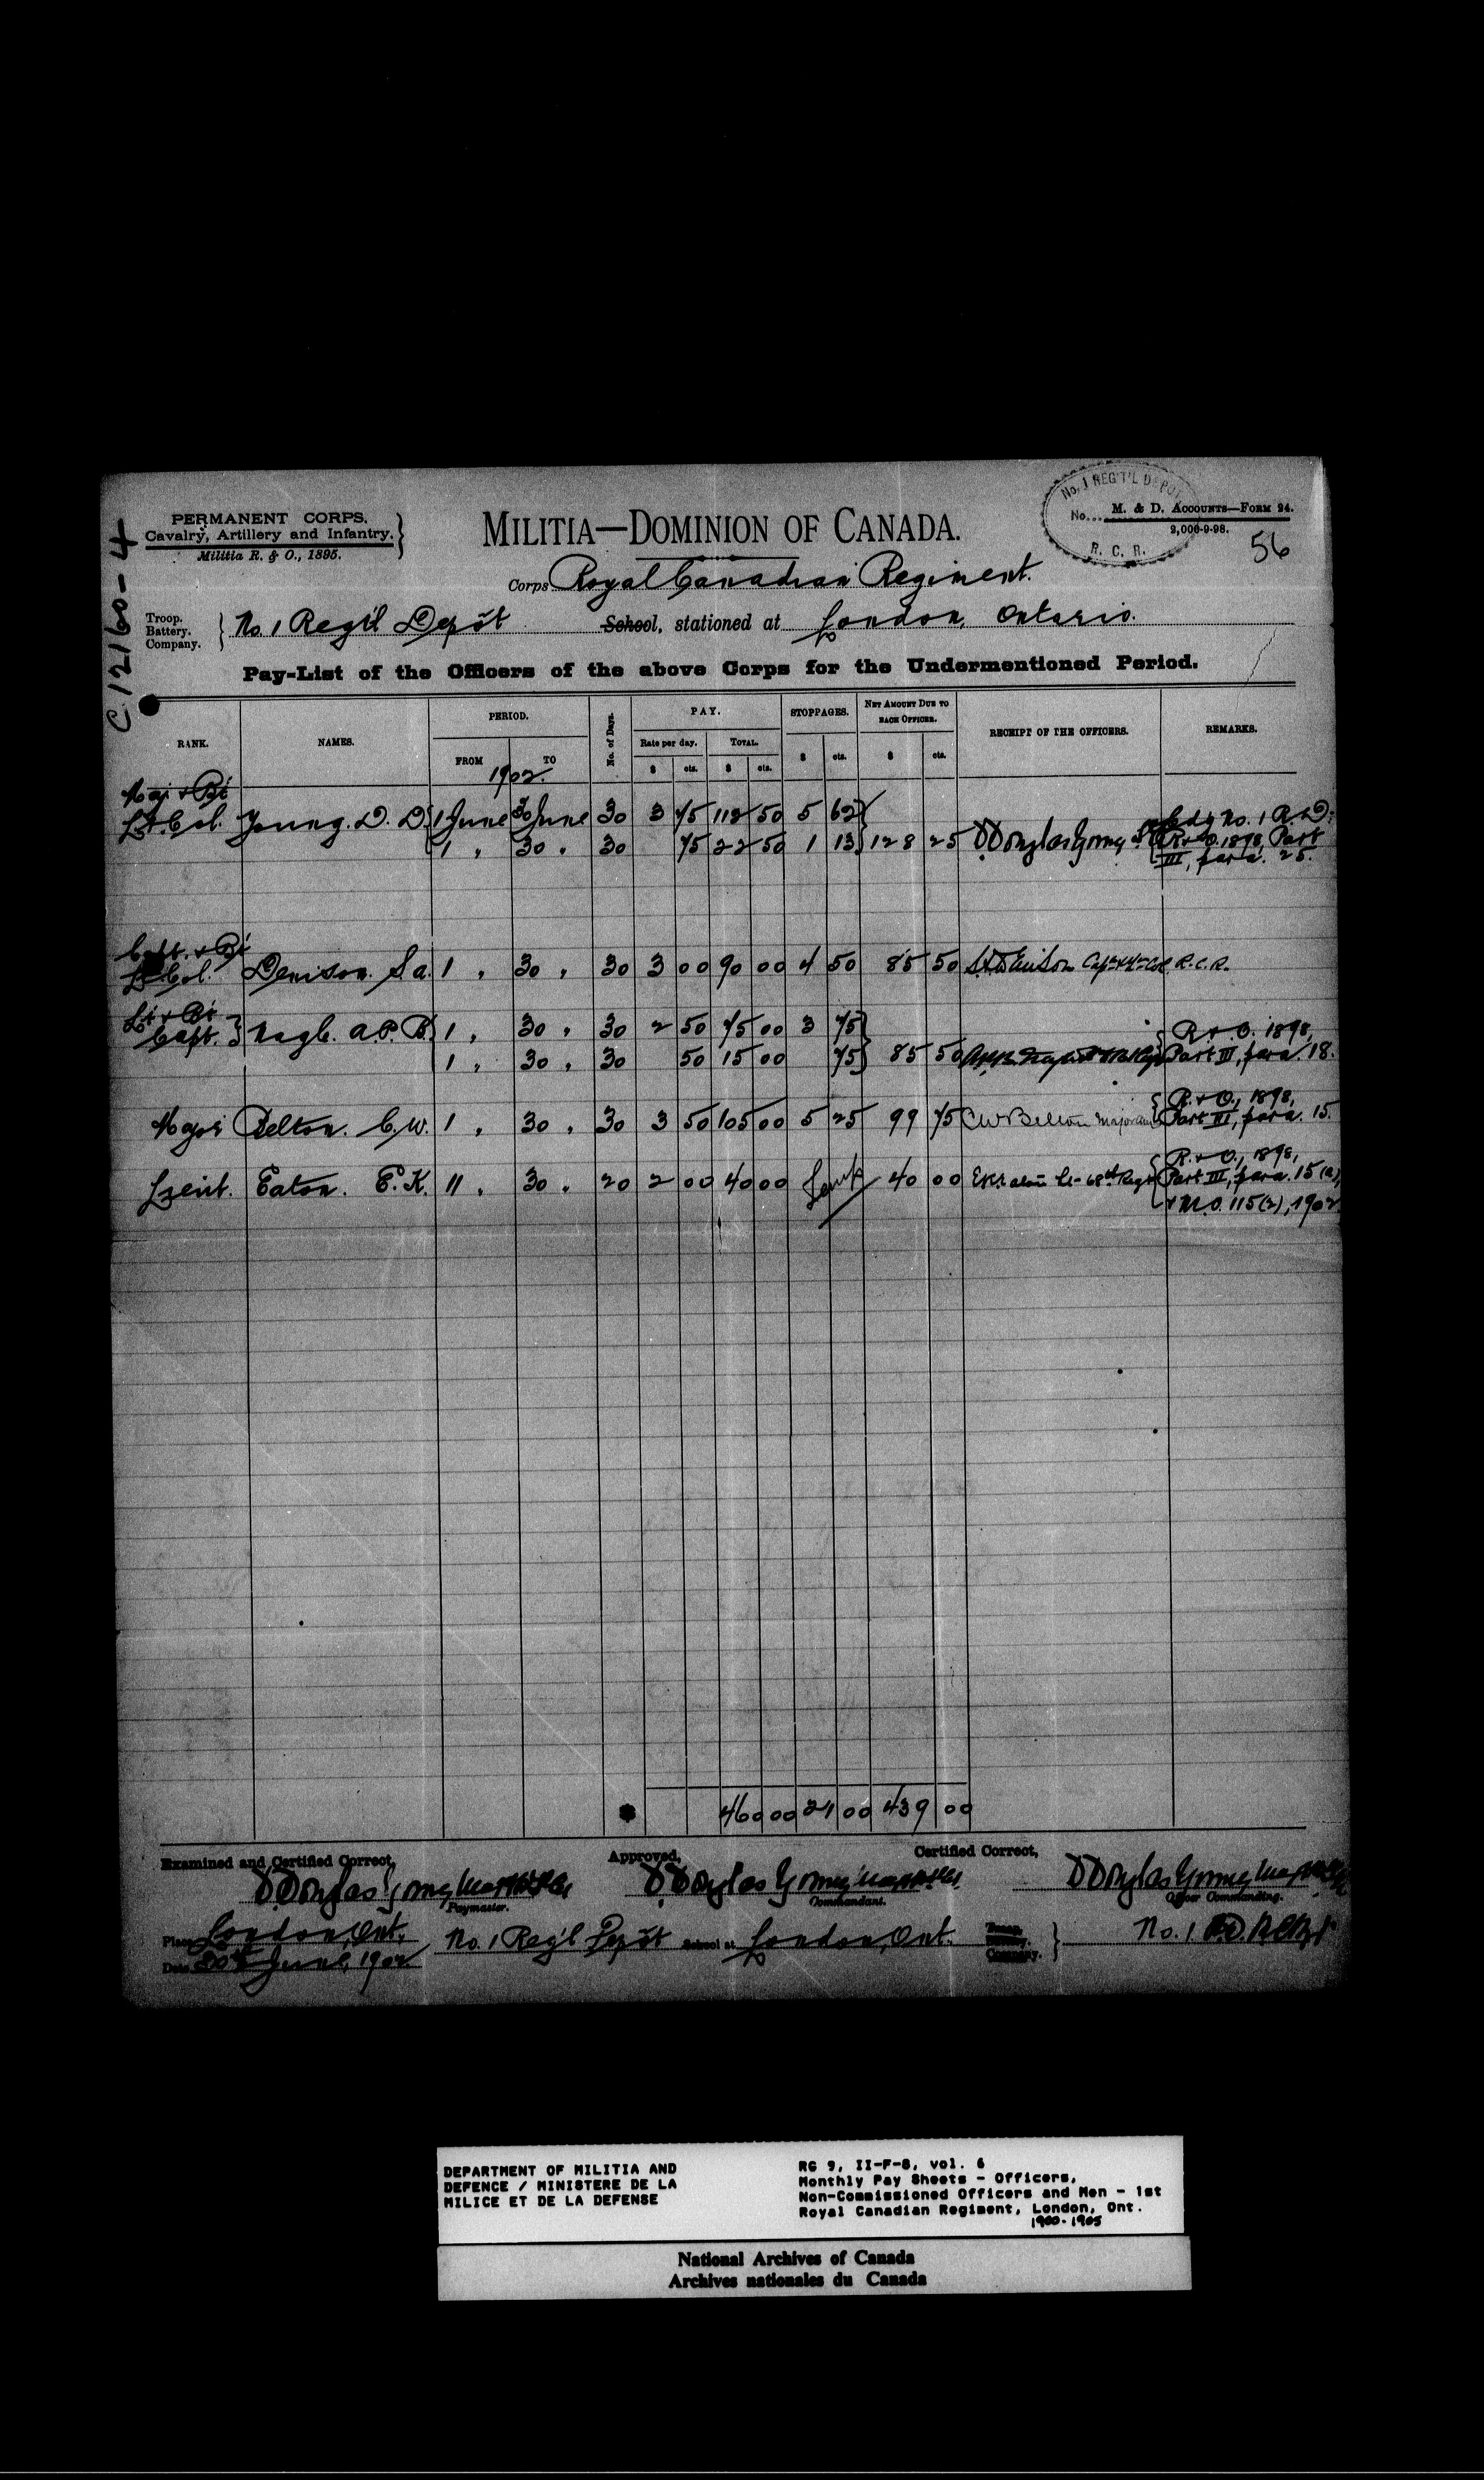 C.12160-4
PERMANENT CORPS.
Cavalry, Artillery and Infantry.
Militia R. & O., 1895.
MILITIA—DOMINION OF CANADA.
No. 1 REG'T'L DEPOT
No.
R. C. R.
M. & D. ACCOUNTS—FORM 94.
2,000-9-98.
56
Corps Royal Canadian Regiment.
Troop.
Battery.
Company.
No. 1 Reg'l Depôt School, stationed at London, Ontario.
Pay-List of the Officers of the above Corps for the Undermentioned Period.
RANK. NAMES. PERIOD. No. of Days. PAY. STOPPAGES. NET AMOUNT DUE TO EACH OFFICER. RECEIPT OF THE OFFICERS. REMARKS.
FROM TO Rate per day. TOTAL. $ cts. $ cts.
1902. $ cts. $ cts.
Maj + Bt
Lt. Col. Young. D. D. 1 June 30 June 30 3 75 112 50 5 62 Cdg No. 1 R.D.
1 " 30 " 30 75 22 50 1 13 128 25 DDouglas Young R+O. 1898, Part
III, para. 25.
Capt. + Bt
Lt Col. Denison. S. a. 1 " 30 " 30 3 00 90 00 4 50 85 50 SADenison Capt + Lt Col R.C.R.
Lt + Bt
Capt. Nagle. A.P.B. 1 " 30 " 30 2 50 75 00 3 75 R+O. 1898,
1 " 30 " 30 50 15 00 75 85 50 Part III, para. 18.
Major Belton. C.W. 1 " 30 " 30 3 50 105 00 5 25 99 75 CWBelton Major R.+O., 1898, Part III, para. 15.
Lieut. Eaton. E.K. 11 " 30 " 20 2 00 40 00 40 00 EKEaton Lt- 68th Regt R.+O., 1898,
Part III, para. 15(a),
+ M.O. 115(2), 1902
460 00 21 00 439 00
Examined and Certified Correct, Approved, Certified Correct,
DDouglas Young DDouglas Young DDouglas Young
Paymaster. Commandant. Officer Commanding.
Place London, Ont. No. 1 Reg'l Depôt School at London, Ont. Troop.
Battery.
Company.
No. 1
Date 30th June, 1902
DEPARTMENT OF MILITIA AND
DEFENCE / MINISTERE DE LA
MILICE ET DE LA DEFENSE
RG 9, II-F-8, vol. 6
Monthly Pay Sheets - Officers,
Non-Commissioned Officers and Men - 1st
Royal Canadian Regiment, London, Ont.
1900-1905
National Archives of Canada
Archives nationales du Canada